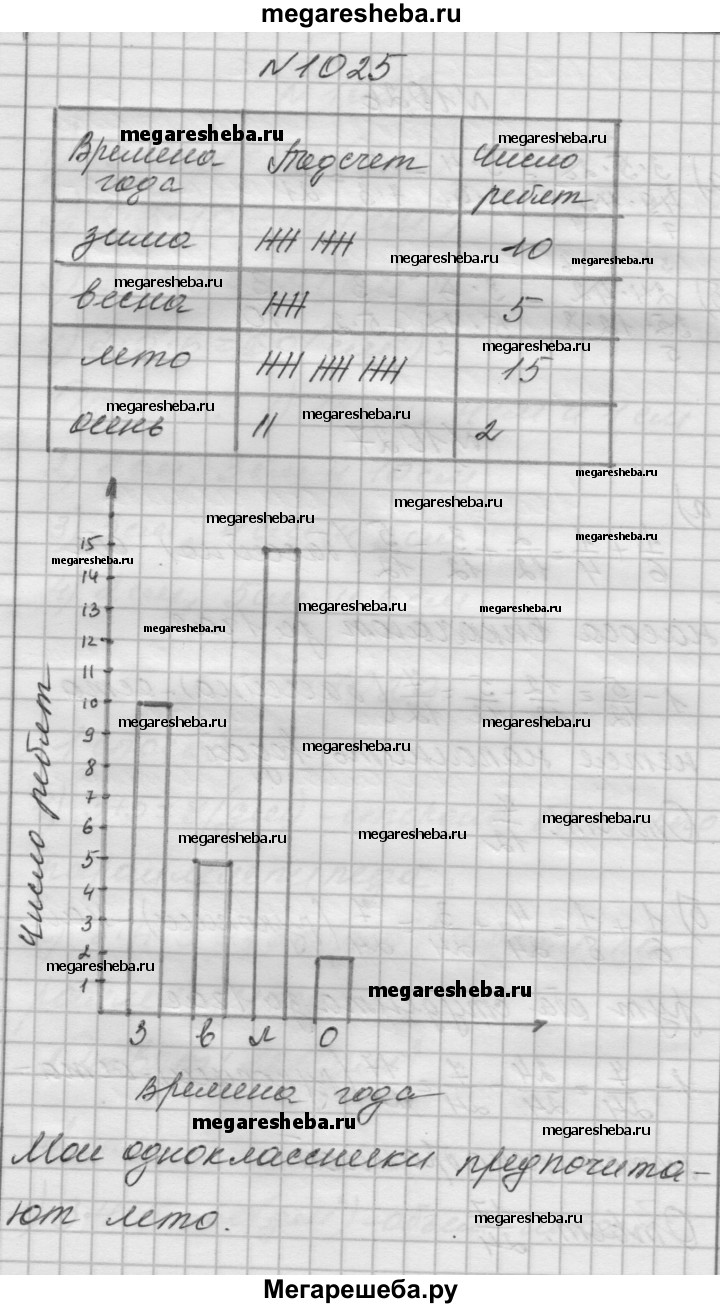 megaresheba.ru
№1025
megaresheba.ru
megaresheba.ru
Времена года
Подсчет
Число ребят
зима
10
megaresheba.ru
megaresheba.ru
megaresheba.ru
весна
5
megaresheba.ru
лето
15
megaresheba.ru
megaresheba.ru
осень
II
2
megaresheba.ru
megaresheba.ru
megaresheba.ru
megaresheba.ru
15
megaresheba.ru
14
13
megaresheba.ru
megaresheba.ru
megaresheba.ru
12
11
10
megaresheba.ru
megaresheba.ru
9
megaresheba.ru
8
7
megaresheba.ru
6
megaresheba.ru
megaresheba.ru
5
4
3
2
megaresheba.ru
1
megaresheba.ru
Число ребят
З В Л О
Времена года
megaresheba.ru
megaresheba.ru
Мои одноклассники предпочита-
ют лето.
megaresheba.ru
Мегарешеба.ру